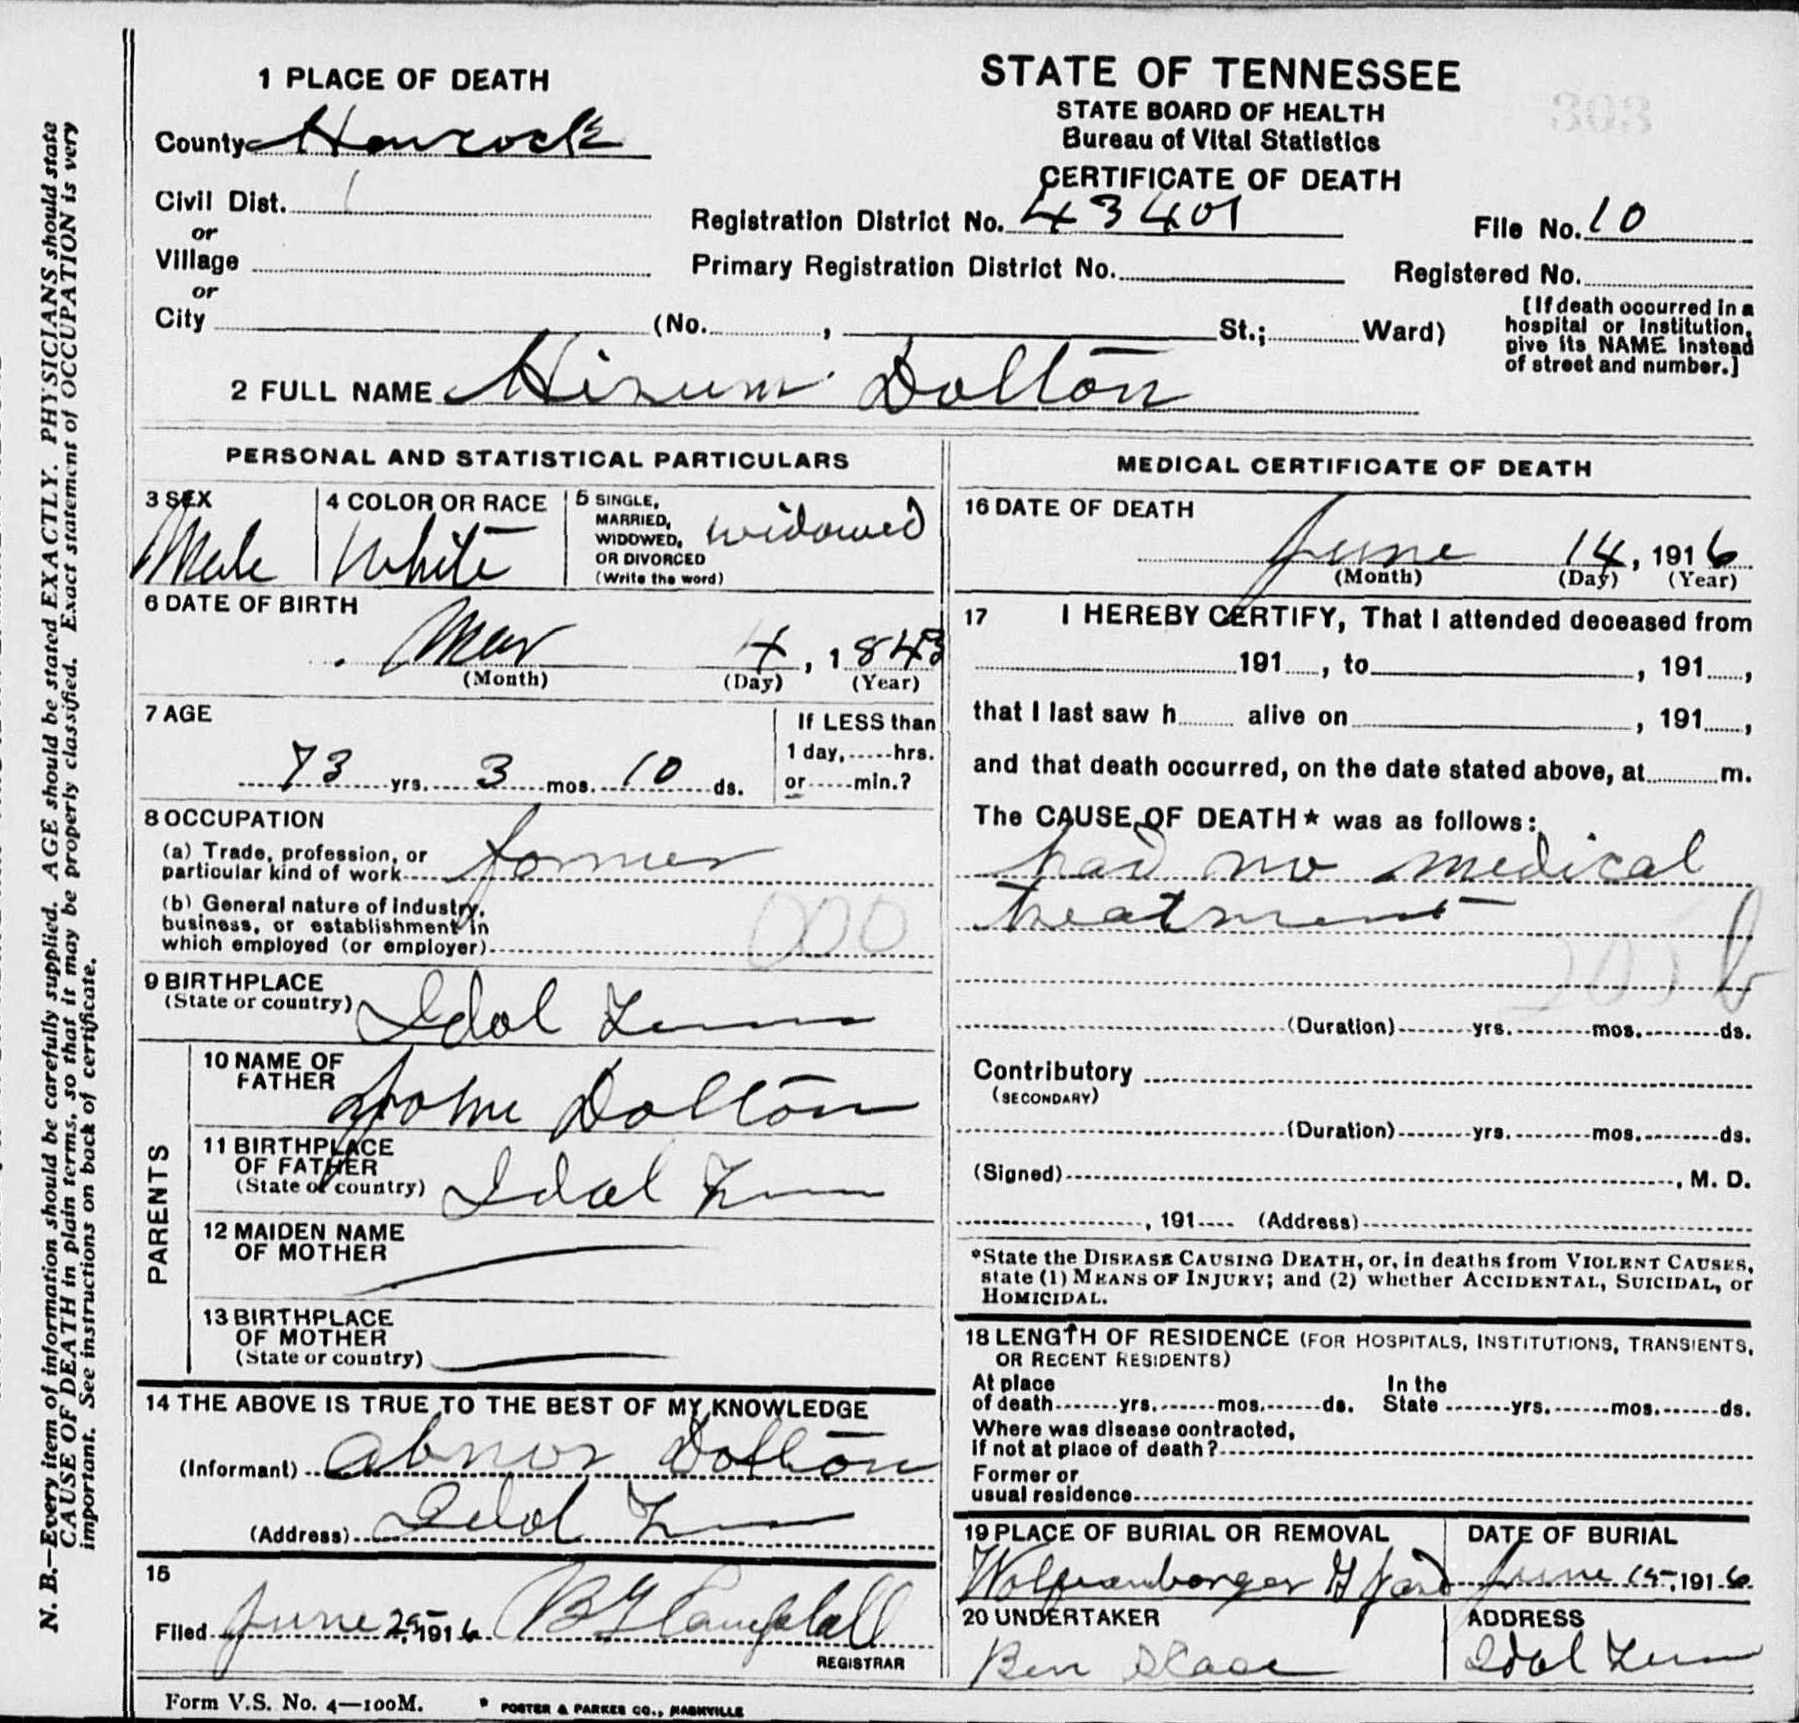 1 PLACE OF DEATH
County Hancock
Civil Dist. 1
or
Village
or
City (No. , St.; Ward)
STATE OF TENNESSEE
STATE BOARD OF HEALTH
Bureau of Vital Statistics
CERTIFICATE OF DEATH
303
Registration District No. 43401
File No. 10
Primary Registration District No.
Registered No.
[If death occurred in a
hospital or institution,
give its NAME instead
of street and number.]
2 FULL NAME Hirum Dolton
PERSONAL AND STATISTICAL PARTICULARS
3 SEX
Male
4 COLOR OR RACE
White
5 SINGLE,
MARRIED,
WIDOWED,
OR DIVORCED
(Write the word)
widowed
6 DATE OF BIRTH
Mar 4, 1843
(Month) (Day) (Year)
7 AGE
73 yrs. 3 mos. 10 ds.
If LESS than
1 day, hrs.
or min.?
8 OCCUPATION
(a) Trade, profession, or
particular kind of work farmer
(b) General nature of industry,
business, or establishment in
which employed (or employer)
000
9 BIRTHPLACE
(State or country) Idol Tenn
PARENTS
10 NAME OF
FATHER John Dolton
11 BIRTHPLACE
OF FATHER
(State or country) Idol Tenn
12 MAIDEN NAME
OF MOTHER
13 BIRTHPLACE
OF MOTHER
(State or country)
14 THE ABOVE IS TRUE TO THE BEST OF MY KNOWLEDGE
(Informant) Abner Dolton
(Address) Idol Tenn
15
Filed June 25, 1916 B G Campbell
REGISTRAR
MEDICAL CERTIFICATE OF DEATH
16 DATE OF DEATH
June 14, 1916
(Month) (Day) (Year)
17 I HEREBY CERTIFY, That I attended deceased from
191 , to , 191 ,
that I last saw h alive on , 191 ,
and that death occurred, on the date stated above, at m.
The CAUSE OF DEATH* was as follows:
had no medical
treatment
205 b
(Duration) yrs. mos. ds.
Contributory
(SECONDARY)
(Duration) yrs. mos. ds.
(Signed) , M. D.
, 191 (Address)
*State the DISEASE CAUSING DEATH, or, in deaths from VIOLENT CAUSES,
state (1) MEANS OF INJURY; and (2) whether ACCIDENTAL, SUICIDAL, or
HOMICIDAL.
18 LENGTH OF RESIDENCE (FOR HOSPITALS, INSTITUTIONS, TRANSIENTS,
OR RECENT RESIDENTS)
At place
of death yrs. mos. ds.
In the
State yrs. mos. ds.
Where was disease contracted,
if not at place of death?
Former or
usual residence
19 PLACE OF BURIAL OR REMOVAL
Wolfenbarger G Yard
DATE OF BURIAL
June 15, 1916
20 UNDERTAKER
Ben
ADDRESS
Idol Tenn
Form V.S. No. 4—100M.
* FOSTER & PARKES CO., NASHVILLE
N. B.—Every item of information should be carefully supplied. AGE should be stated EXACTLY. PHYSICIANS should state
CAUSE OF DEATH in plain terms, so that it may be properly classified. Exact statement of OCCUPATION is very
important. See instructions on back of certificate.